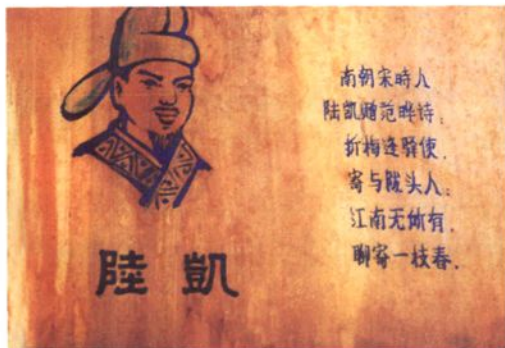 南朝宋時人
陆凯赠范晔诗：
折梅逢驿使，
寄与陇头人；
江南无所有，
聊寄一枝春。
陸 凱